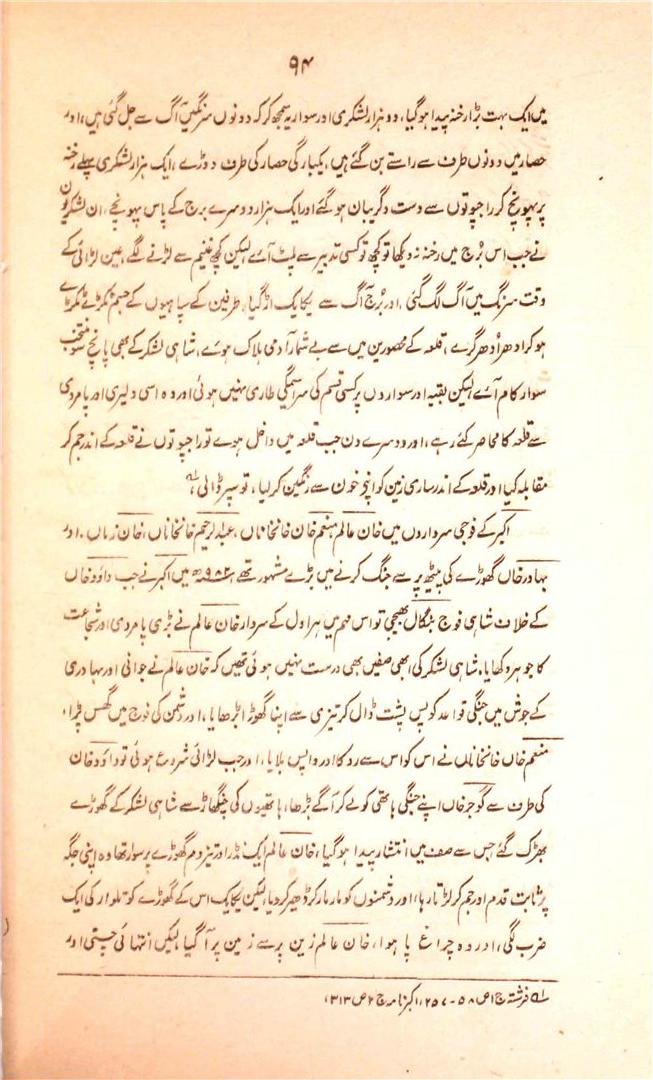 ۹۴
میں ایک بہت بڑا رخنہ پیدا ہوگیا، دو ہزار لشکری اور سوار یہ سمجھ کر کہ دونوں سرنگیں آگ سے جل گئی ہیں، اور
حصار میں دونوں طرف سے راستے بن گئے ہیں، یکبارگی حصار کی طرف دوڑے، ایک ہزار لشکری پہلے رخنہ
پر پہونچ کر راجپوتوں سے دست و گریبان ہوگئے اور ایک ہزار دوسرے برج کے پاس پہونچے، ان لشکریوں
نے جب اس بُرج میں رخنہ نہ دیکھا تو کچھ تو کسی تدبیر سے پلٹ آے لیکن کچھ غنیم سے لڑنے لگے، عین لڑائی کے
وقت سرنگ میں آگ لگ گئی، اور بُرج آگ سے یکایک اڑ گیا، طرفین کے سپاہیوں کے جسم ٹکڑے ٹکڑے
ہو کر ادھر اُدھر گرے، قلعہ کے محصورین میں سے بے شمار آدمی ہلاک ہوے، شاہی لشکر کے بھی پانچ سو منتخب
سوار کام آے لیکن بقیہ اور سواروں پر کسی قسم کی سراسمگی طاری نہیں ہوئی اور وہ اسی دلیری اور پامردی
سے قلعہ کا محاصر کئے رہے، اور دوسرے دن جب قلعہ میں داخل ہوے تو راجپوتوں نے قلعہ کے اندر جم کر
مقابلہ کیا اور قلعہ کے اندر ساری زمین کو اپنے خون سے رنگین کر لیا، تو سپر ڈالی، لہ
اکبر کے فوجی سرداروں میں خان عالم منعم خان خانخاناں، عبدالرحیم خانخاناں، خان زماں، اور
بہادر خاں گھوڑے کی پیٹھ پر سے جنگ کرنے میں بڑے مشہور تھے، ۹۸۲ھ میں اکبر نے جب داؤد خاں
کے خلاف شاہی فوج بنگال بھیجی تو اس مہم میں ہراول کے سردار خان عالم نے بڑی پامردی اور شجاعت
کا جوہر دکھایا، شاہی لشکر کی ابھی صفیں بھی درست نہیں ہوئی تھیں کہ خان عالم نے جوانی اور بہادری
کے جوش میں جنگی قواعد کو پس پشت ڈال کر تیزی سے اپنا گھوڑا بڑھایا، اور دشمن کی فوج میں گھس پڑا،
منعم خاں خانخاناں نے اس کو اس سے روکا اور واپس بلایا، اور جب لڑائی شروع ہوئی تو داؤد خان
کی طرف سے گوجر خاں اپنے جنگی ہاتھی کو لے کر آگے بڑھا، ہاتھیوں کی چنگھاڑ سے شاہی لشکر کے گھوڑے
بھڑک گئے جس سے صف میں انتشار پیدا ہو گیا، خان عالم ایک نڈر اور تیز دم گھوڑے پر سوار تھا وہ اپنی جگہ
پر ثابت قدم اور جم کر لڑتا رہا، اور دشمنوں کو مار مار کر ڈھیر کر دیا لیکن یکایک اس کے گھوڑے کو تلوار کی ایک
ضرب لگی، اور وہ چراغ پا ہوا، خان عالم زین پر سے زمین پر آگیا لیکن انتہائی چستی اور
لہ فرشتہ ج ۱ ص ۵۸-۲۵۷، اکبر نامہ ج ۲ ص ۳۱۳،